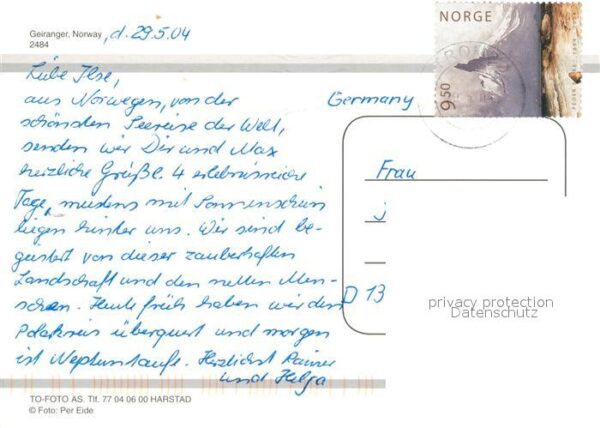 Geiranger, Norway, d. 29.5.04
2484
NORGE
9.50
Liebe Ilse,
aus Norwegen, von der
schönsten Seereise der Welt,
senden wir Dir und Max
herzliche Grüße. 4 erlebnisreiche
Tage, meistens mit Sonnenschein
liegen hinter uns. Wir sind be-
geistert von dieser zauberhaften
Landschaft und den netten Men-
schen. Heute früh haben wir den
Polarkreis überquert und morgen
ist Neptuntaufe. Herzlichst Rainer
und Helga
Germany
Frau
D 13
privacy protection
Datenschutz
TO-FOTO AS. Tlf. 77 04 06 00 HARSTAD
© Foto: Per Eide